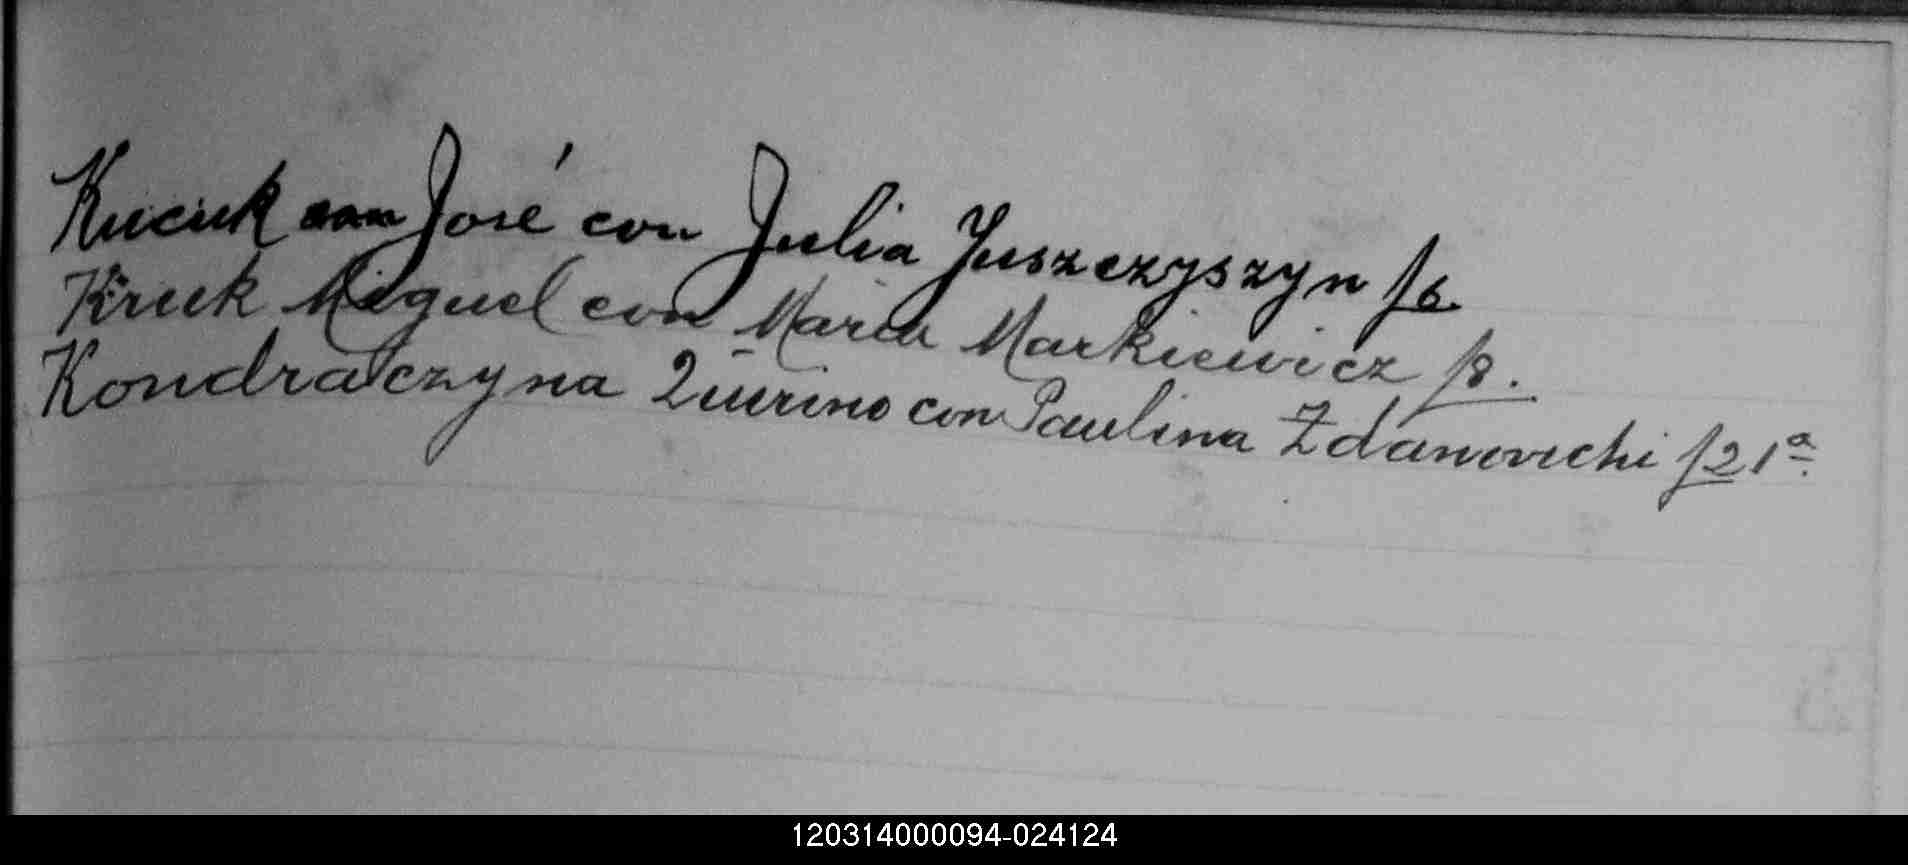 Kucuk José con Julia Juszczyszyn f6.
Kruk Miguel con Maria Markiewicz f8.
Kondraczyna Quirino con Paulina Zdanovichi f21ª.
120314000094-024124